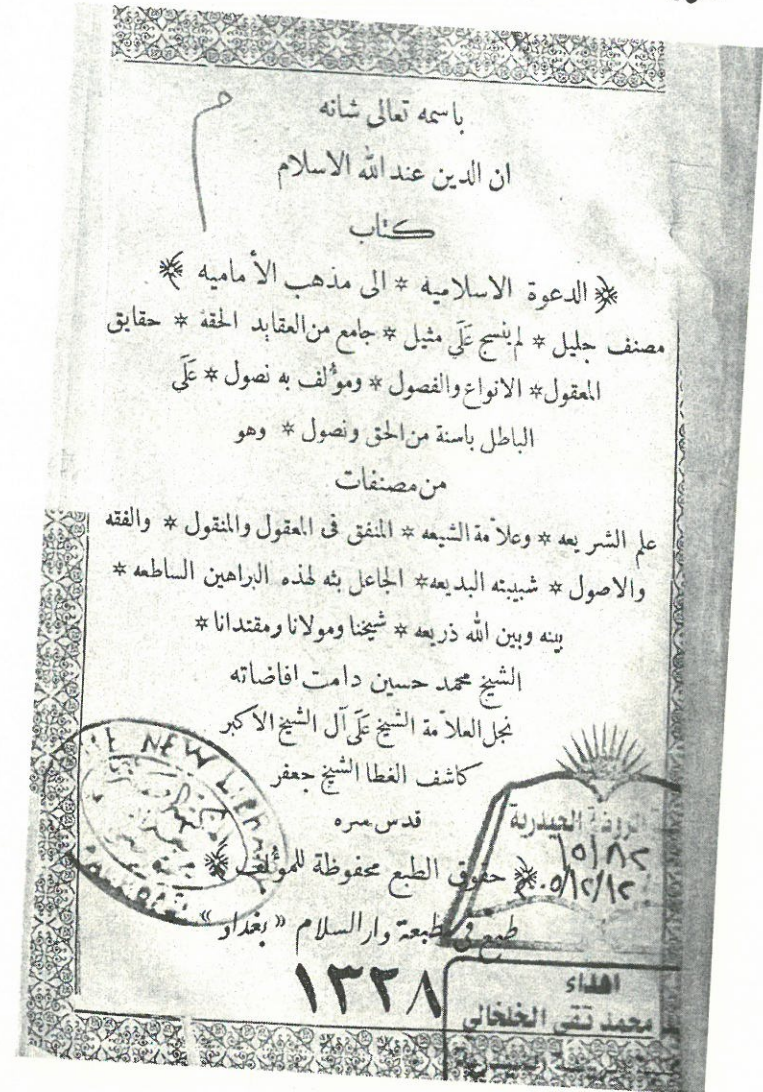 م
باسمه تعالى شانه
ان الدين عند الله الاسلام
كتاب
﴿ الدعوة الاسلاميه * الى مذهب الأماميه ﴾
مصنف جليل * لم ينسج عَلَى مثيل * جامع من العقايد الحقه * حقايق
المعقول * الانواع والفصول * ومؤلف به نصول * عَلَى
الباطل باسنة من الحق ونصول * وهو
من مصنفات
علم الشريعه * وعلامة الشيعه * المنفق فى المعقول والمنقول * والفقه
والاصول * شبيبته البديعه * الجاعل بثه لهذه البراهين الساطعه *
بينه وبين الله ذريعه * شيخنا ومولانا ومقتدانا *
الشيخ محمد حسين دامت افاضاته
نجل العلامة الشيخ عَلَى آل الشيخ الاكبر
كاشف الغطا الشيخ جعفر
قدس سره
﴿ حقوق الطبع محفوظة للمؤلف ﴾
طبع في مطبعة دار السلام « بغداد »
١٣٢٨
NEW
الروضة الحيدرية
اهداء
محمد تقي الخلخالي